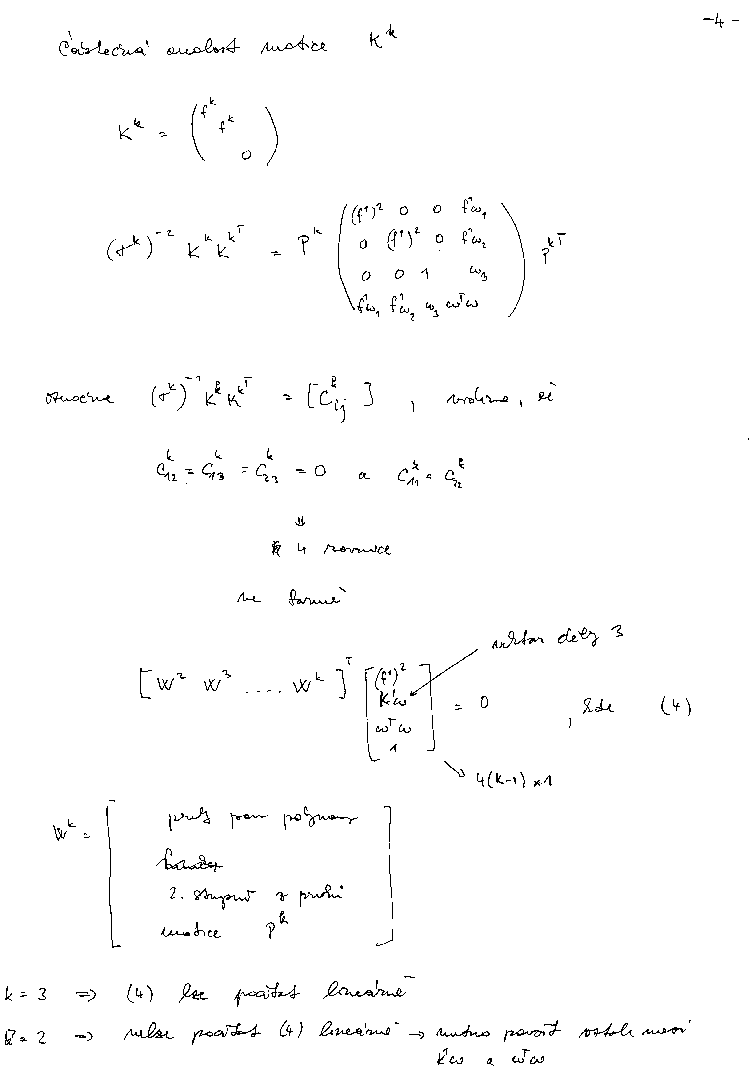 -4-
Částečná znalost matice K^k
K^k = ( f^k f^k 0 )
(λ^k)^{-2} K^k K^{kT} = P^k
(f^1)^2 0 0 f^1ω_1
0 (f^1)^2 0 f^1ω_2
0 0 1 ω_3
f^1ω_1 f^1ω_2 ω_3 ω^Tω
P^{kT}
označme K^k K^{kT} = [C^k_{ij}] , vidíme, že
C^k_{12} = C^k_{13} = C^k_{23} = 0 a C^k_{11} = C^k_{22}
⇓
4 rovnice
ve formě
vektor délky 3
[W^2 W^3 .... W^k]^T [ (f^1)^2 K^1ω ω^Tω 1 ] = 0 , kde (4)
4(k-1) × 1
W^k =
prvky jsou polynomy
2. stupně z prvků
matice P^k
k = 3 ⇒ (4) lze počítat lineárně
k = 2 ⇒ nelze počítat (4) lineárně → nutno použít vztah mezi
K^1ω a ω^Tω